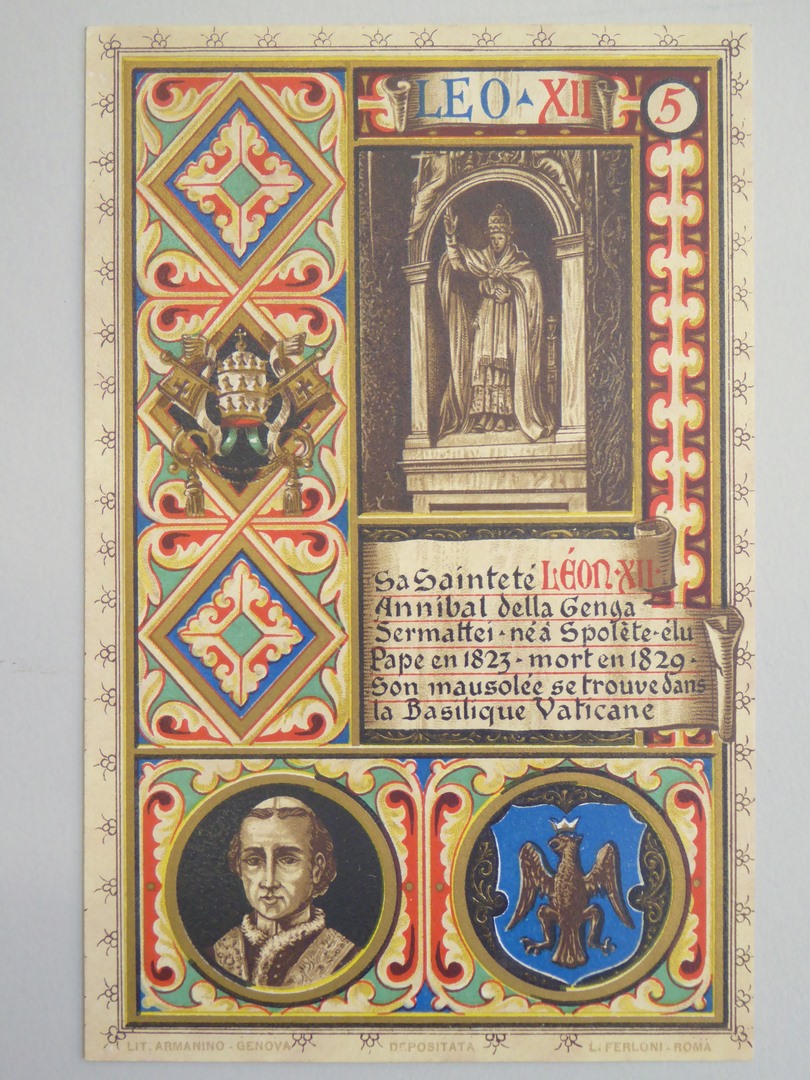 LEO XII
5
Sa Sainteté LÉON·XII·
Annibal della Genga
Sermattei·né à Spolète·élu
Pape en 1823·mort en 1829·
Son mausolée se trouve dans
la Basilique Vaticane
LIT. ARMANINO - GENOVA DEPOSITATA L. FERLONI - ROMA